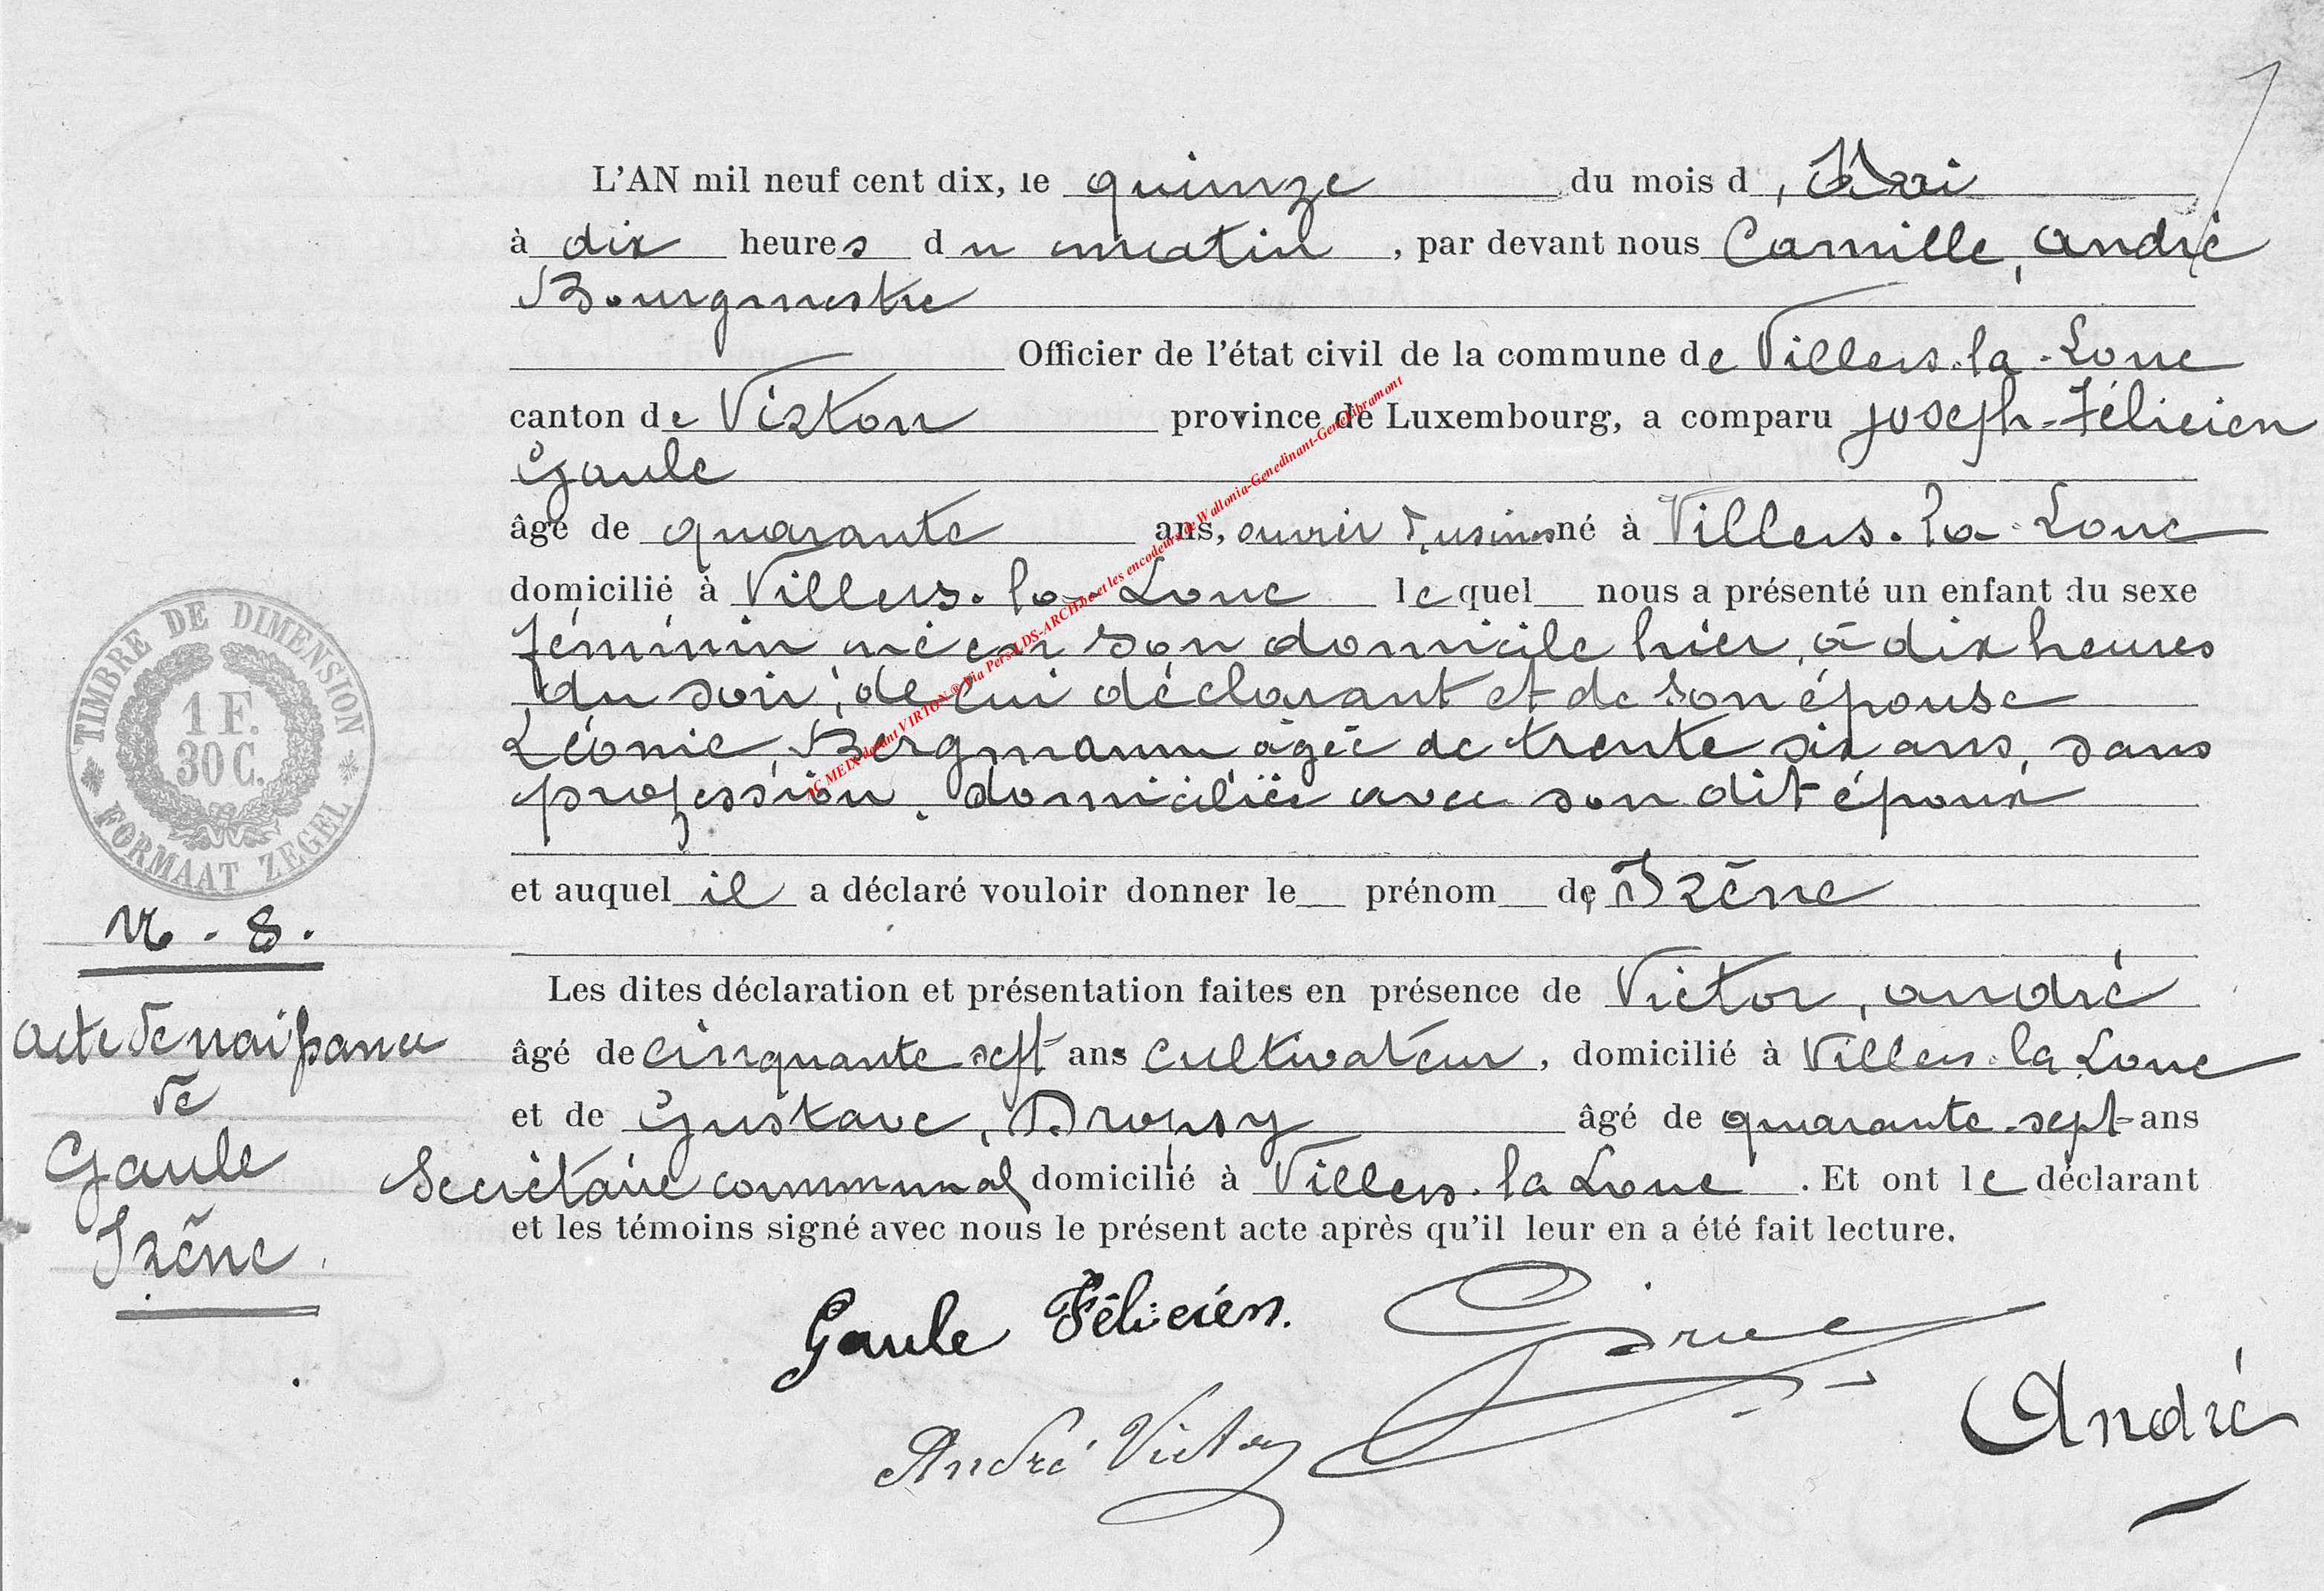 L'AN mil neuf cent dix, le quinze du mois d, Mai
à dix heures du matin, par devant nous Camille, André
Bourgmestre
Officier de l'état civil de la commune de Villers-la-Loue
canton de Virton province de Luxembourg, a comparu Joseph-Félicien
Gaule
âgé de quarante ans, ouvrier d'usines né à Villers-la-Loue
domicilié à Villers-la-Loue lequel nous a présenté un enfant du sexe
féminin né en son domicile hier, à dix heures
du soir, de lui déclarant et de son épouse
Léonie, Bergmann âgée de trente six ans, sans
profession, domiciliée avec son dit époux
et auquel il a déclaré vouloir donner le prénom de Irène
Les dites déclaration et présentation faites en présence de Victor, André
âgé de cinquante sept ans cultivateur, domicilié à Villers-la-Loue
et de Gustave, Dropsy âgé de quarante-sept ans
Secrétaire communal domicilié à Villers-la-Loue. Et ont le déclarant
et les témoins signé avec nous le présent acte après qu'il leur en a été fait lecture.
Gaule Félicien.
André Victor
André
TIMBRE DE DIMENSION
1 F.
30 C.
FORMAAT ZEGEL
N. 8.
Acte de naissance
de
Gaule
Irène.